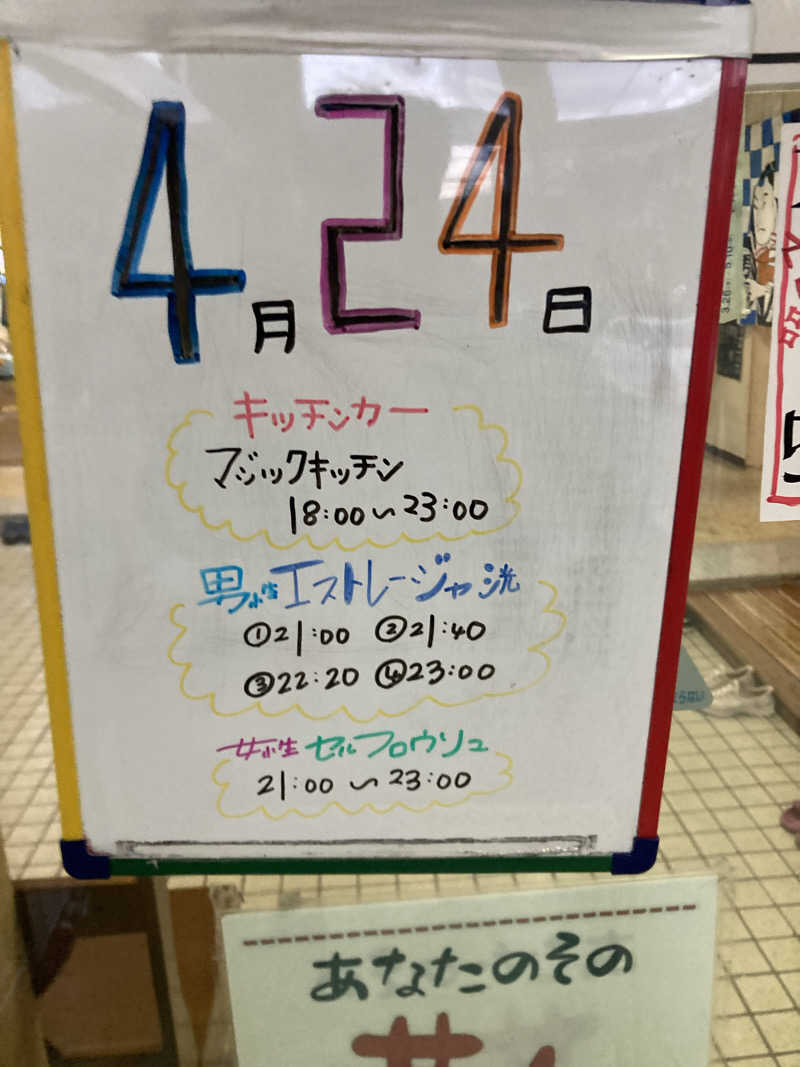 4月24日
キッチンカー
マジックキッチン
18:00～23:00
男性エストレージャ洸
①21:00 ②21:40
③22:20 ④23:00
女性セルフロウリュ
21:00～23:00
らない
あなたのその